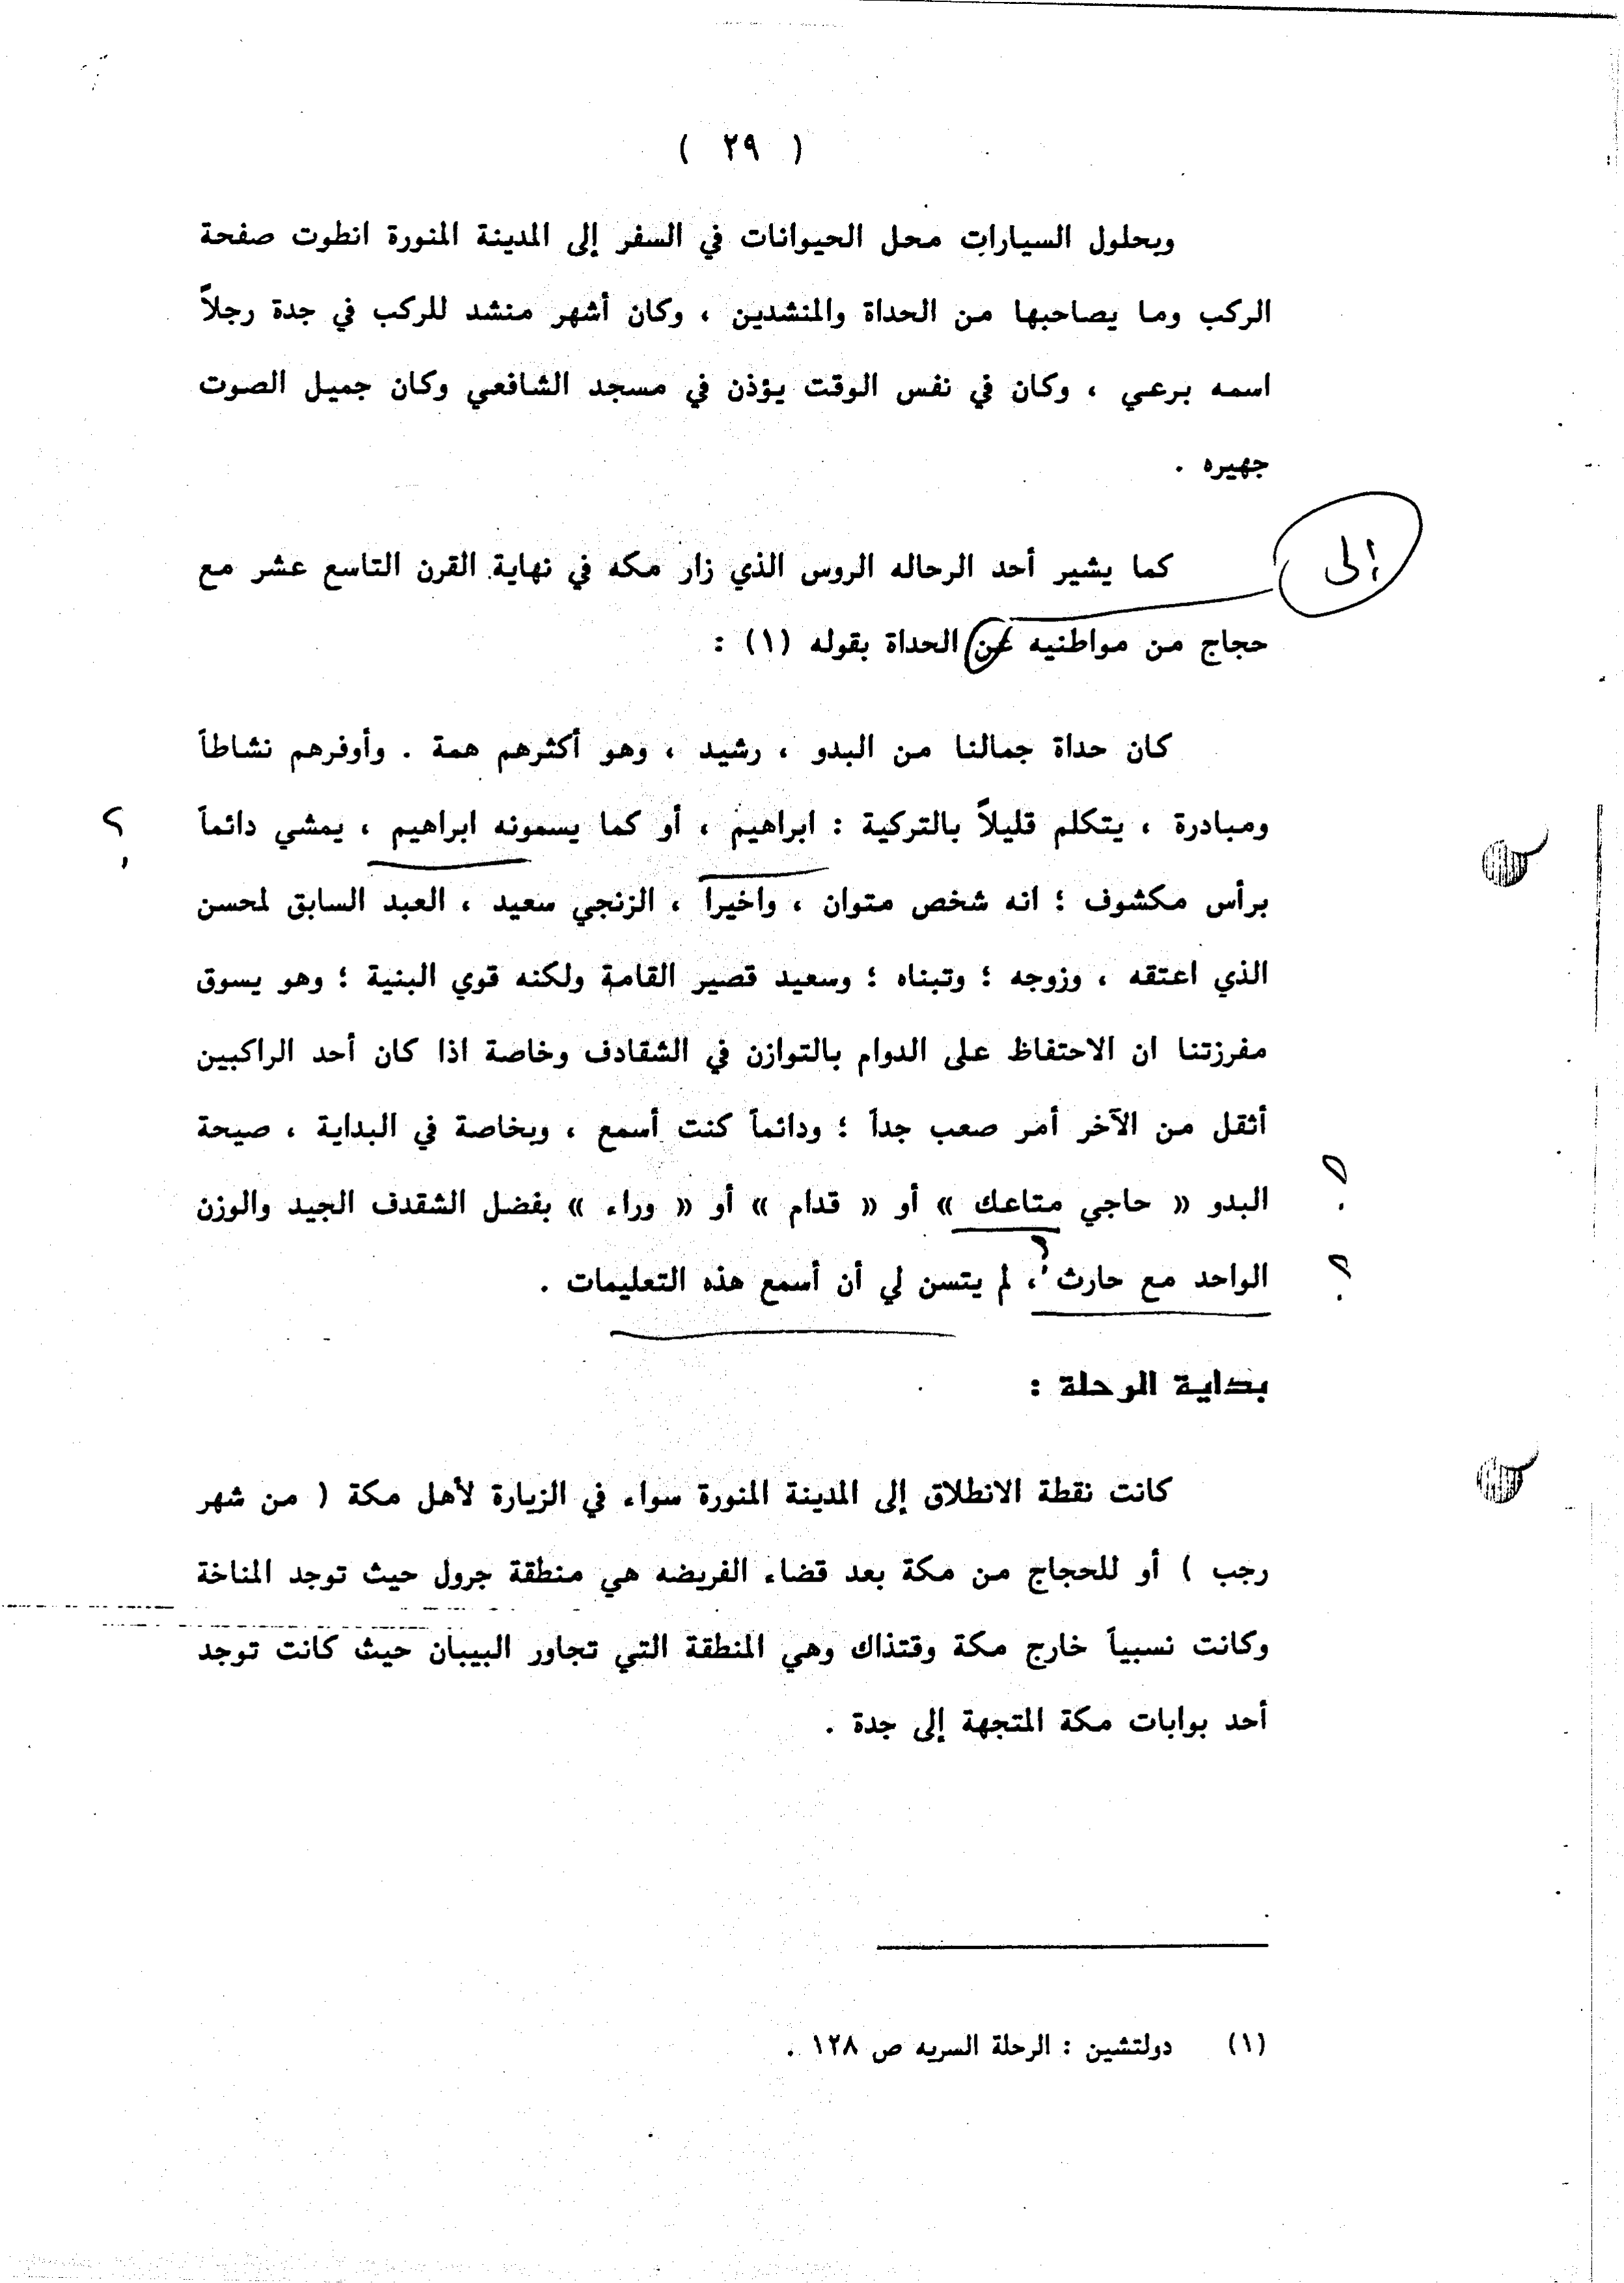 ( ٢٩ )
وبحلول السيارات محل الحيوانات في السفر إلى المدينة المنورة انطوت صفحة
الركب وما يصاحبها من الحداة والمنشدين ، وكان أشهر منشد للركب في جدة رجلاً
اسمه برعي ، وكان في نفس الوقت يؤذن في مسجد الشافعي وكان جميل الصوت
جهيره .
إلى
كما يشير أحد الرحاله الروس الذي زار مكه في نهاية القرن التاسع عشر مع
حجاج من مواطنيه عن الحداة بقوله (١) :
كان حداة جمالنا من البدو ، رشيد ، وهو أكثرهم همة . وأوفرهم نشاطاً
ومبادرة ، يتكلم قليلاً بالتركية : ابراهيم ، أو كما يسمونه ابراهيم ، يمشي دائماً ؟
برأس مكشوف ؛ انه شخص متوان ، واخيرا ، الزنجي سعيد ، العبد السابق لمحسن
الذي اعتقه ، وزوجه ؛ وتبناه ؛ وسعيد قصير القامة ولكنه قوي البنية ؛ وهو يسوق
مفرزتنا ان الاحتفاظ على الدوام بالتوازن في الشقادف وخاصة اذا كان أحد الراكبين
أثقل من الآخر أمر صعب جداً ؛ ودائماً كنت أسمع ، وبخاصة في البداية ، صيحة
؟ البدو « حاجي متاعك » أو « قدام » أو « وراء » بفضل الشقدف الجيد والوزن
؟ الواحد مع حارث ؟ ، لم يتسن لي أن أسمع هذه التعليمات .
بداية الرحلة :
كانت نقطة الانطلاق إلى المدينة المنورة سواء في الزيارة لأهل مكة ( من شهر
رجب ) أو للحجاج من مكة بعد قضاء الفريضه هي منطقة جرول حيث توجد المناخة
وكانت نسبياً خارج مكة وقتذاك وهي المنطقة التي تجاور البيبان حيث كانت توجد
أحد بوابات مكة المتجهة إلى جدة .
(١) دولتشين : الرحلة السريه ص ١٢٨ .